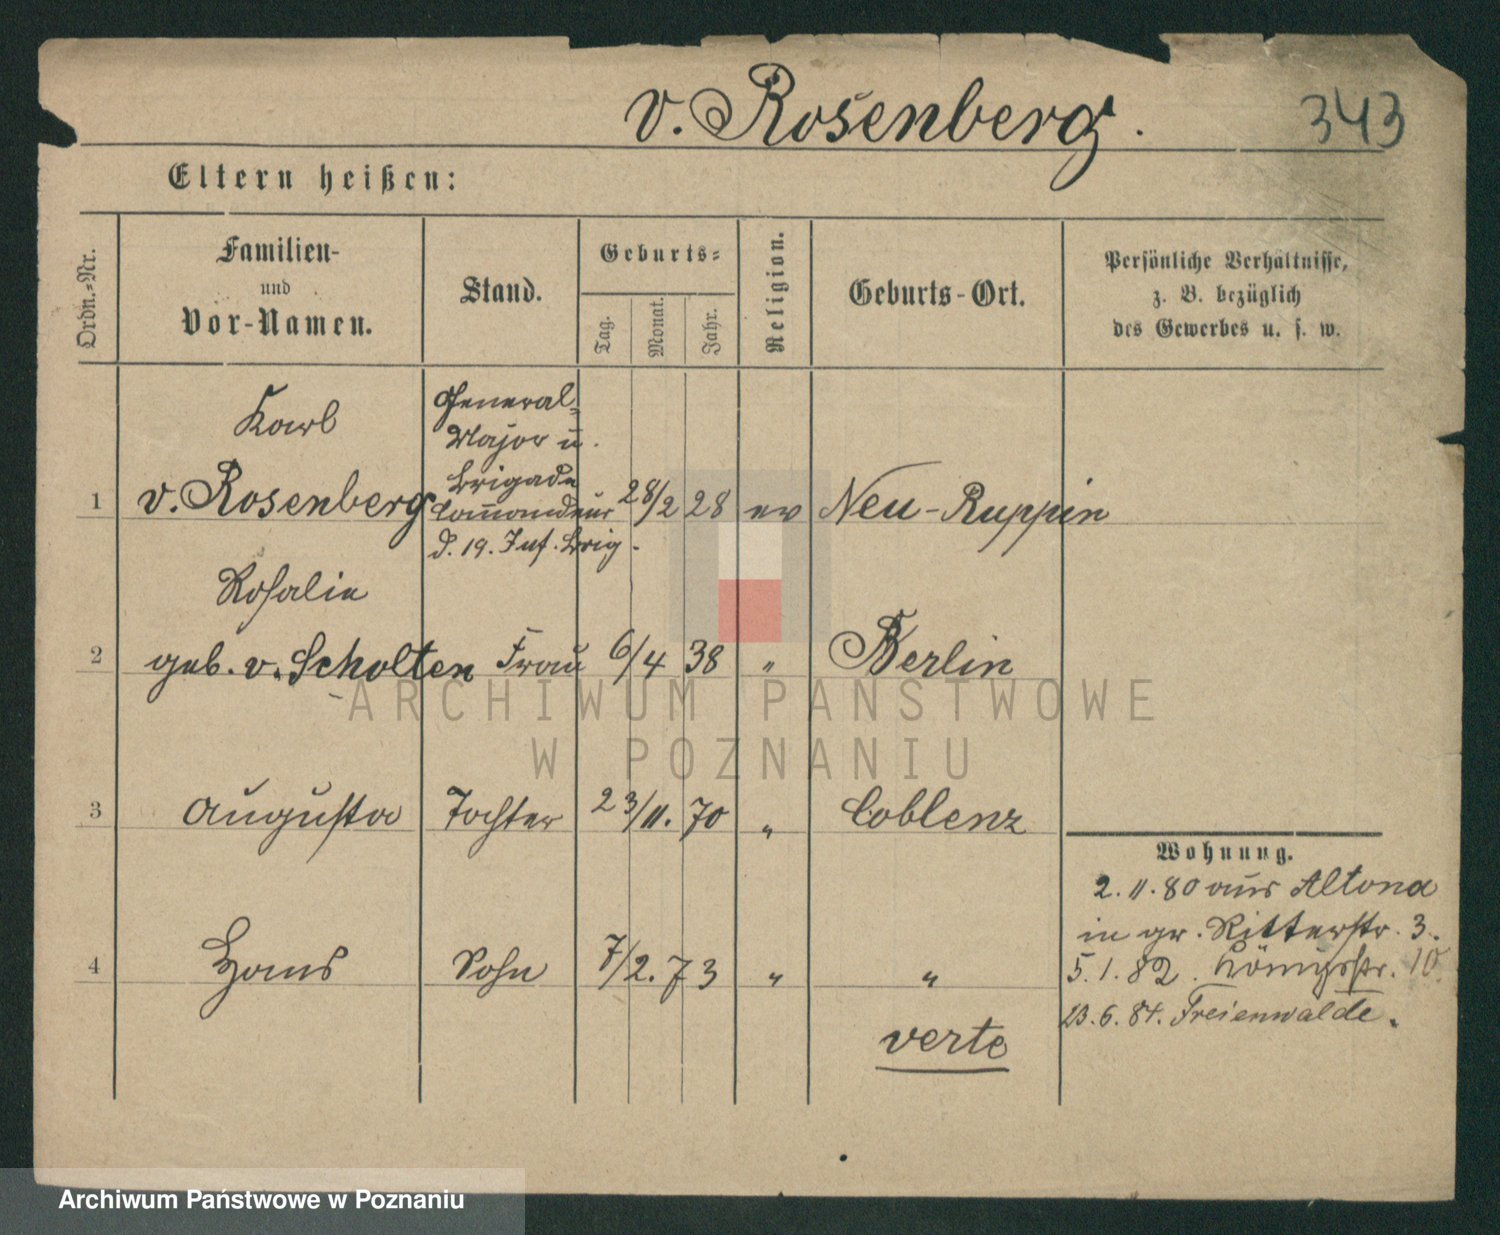 v. Rosenberg.
343
Eltern heißen:
Ordn.-Nr.
Familien-
und
Vor-Namen.
Stand.
Geburts-
Tag.
Monat.
Jahr.
Religion.
Geburts-Ort.
Persönliche Verhältnisse,
z. B. bezüglich
des Gewerbes u. s. w.
1
Karl
v. Rosenberg
General-
Major u.
Brigade
Comandeur
d. 19. Inf. Brig.
28/2 28
ev
Neu-Ruppin
2
Rosalie
geb. v. Scholten
Frau
6/4 38
"
Berlin
3
Augusta
Tochter
23/11. 70
"
Coblenz
4
Hans
Sohn
7/2. 73
"
"
verte
Wohnung.
2. 11. 80 aus Altona
in gr. Ritterstr. 3.
5. 1. 82. Königsstr. 10
23. 6. 84. Freienwalde.
ARCHIWUM PAŃSTWOWE
W POZNANIU
Archiwum Państwowe w Poznaniu